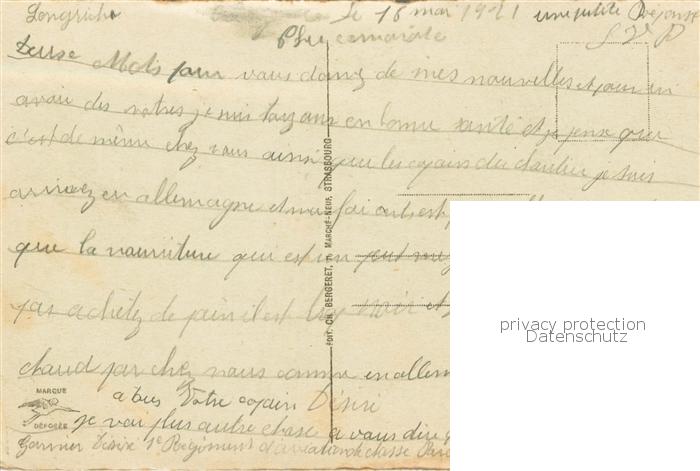 Longuich le 18 mai 1921 une petite Réponse
S V P
Cher camarade
deuse Mots pour vous donnez de mes nouvelles et pour en
avoir des votres je suis toujours en bonne santé et je pense que
c'est de même chez vous ainsi que les copains du chantier je suis
arrivez en allemagne et ma foi on est
que la nourriture qui est un peut
pas achetez de pain il est trop noir et
chaud par chez nous comme en allem
a tous Votre copain Désiré
je voi plus autre chose a vous dire
Garnier Désiré 1e Regiment d'aviation de chasse
EDIT. CH. BERGERET, MARCHÉ-NEUF, STRASBOURG
MARQUE
DÉPOSÉE
privacy protection
Datenschutz